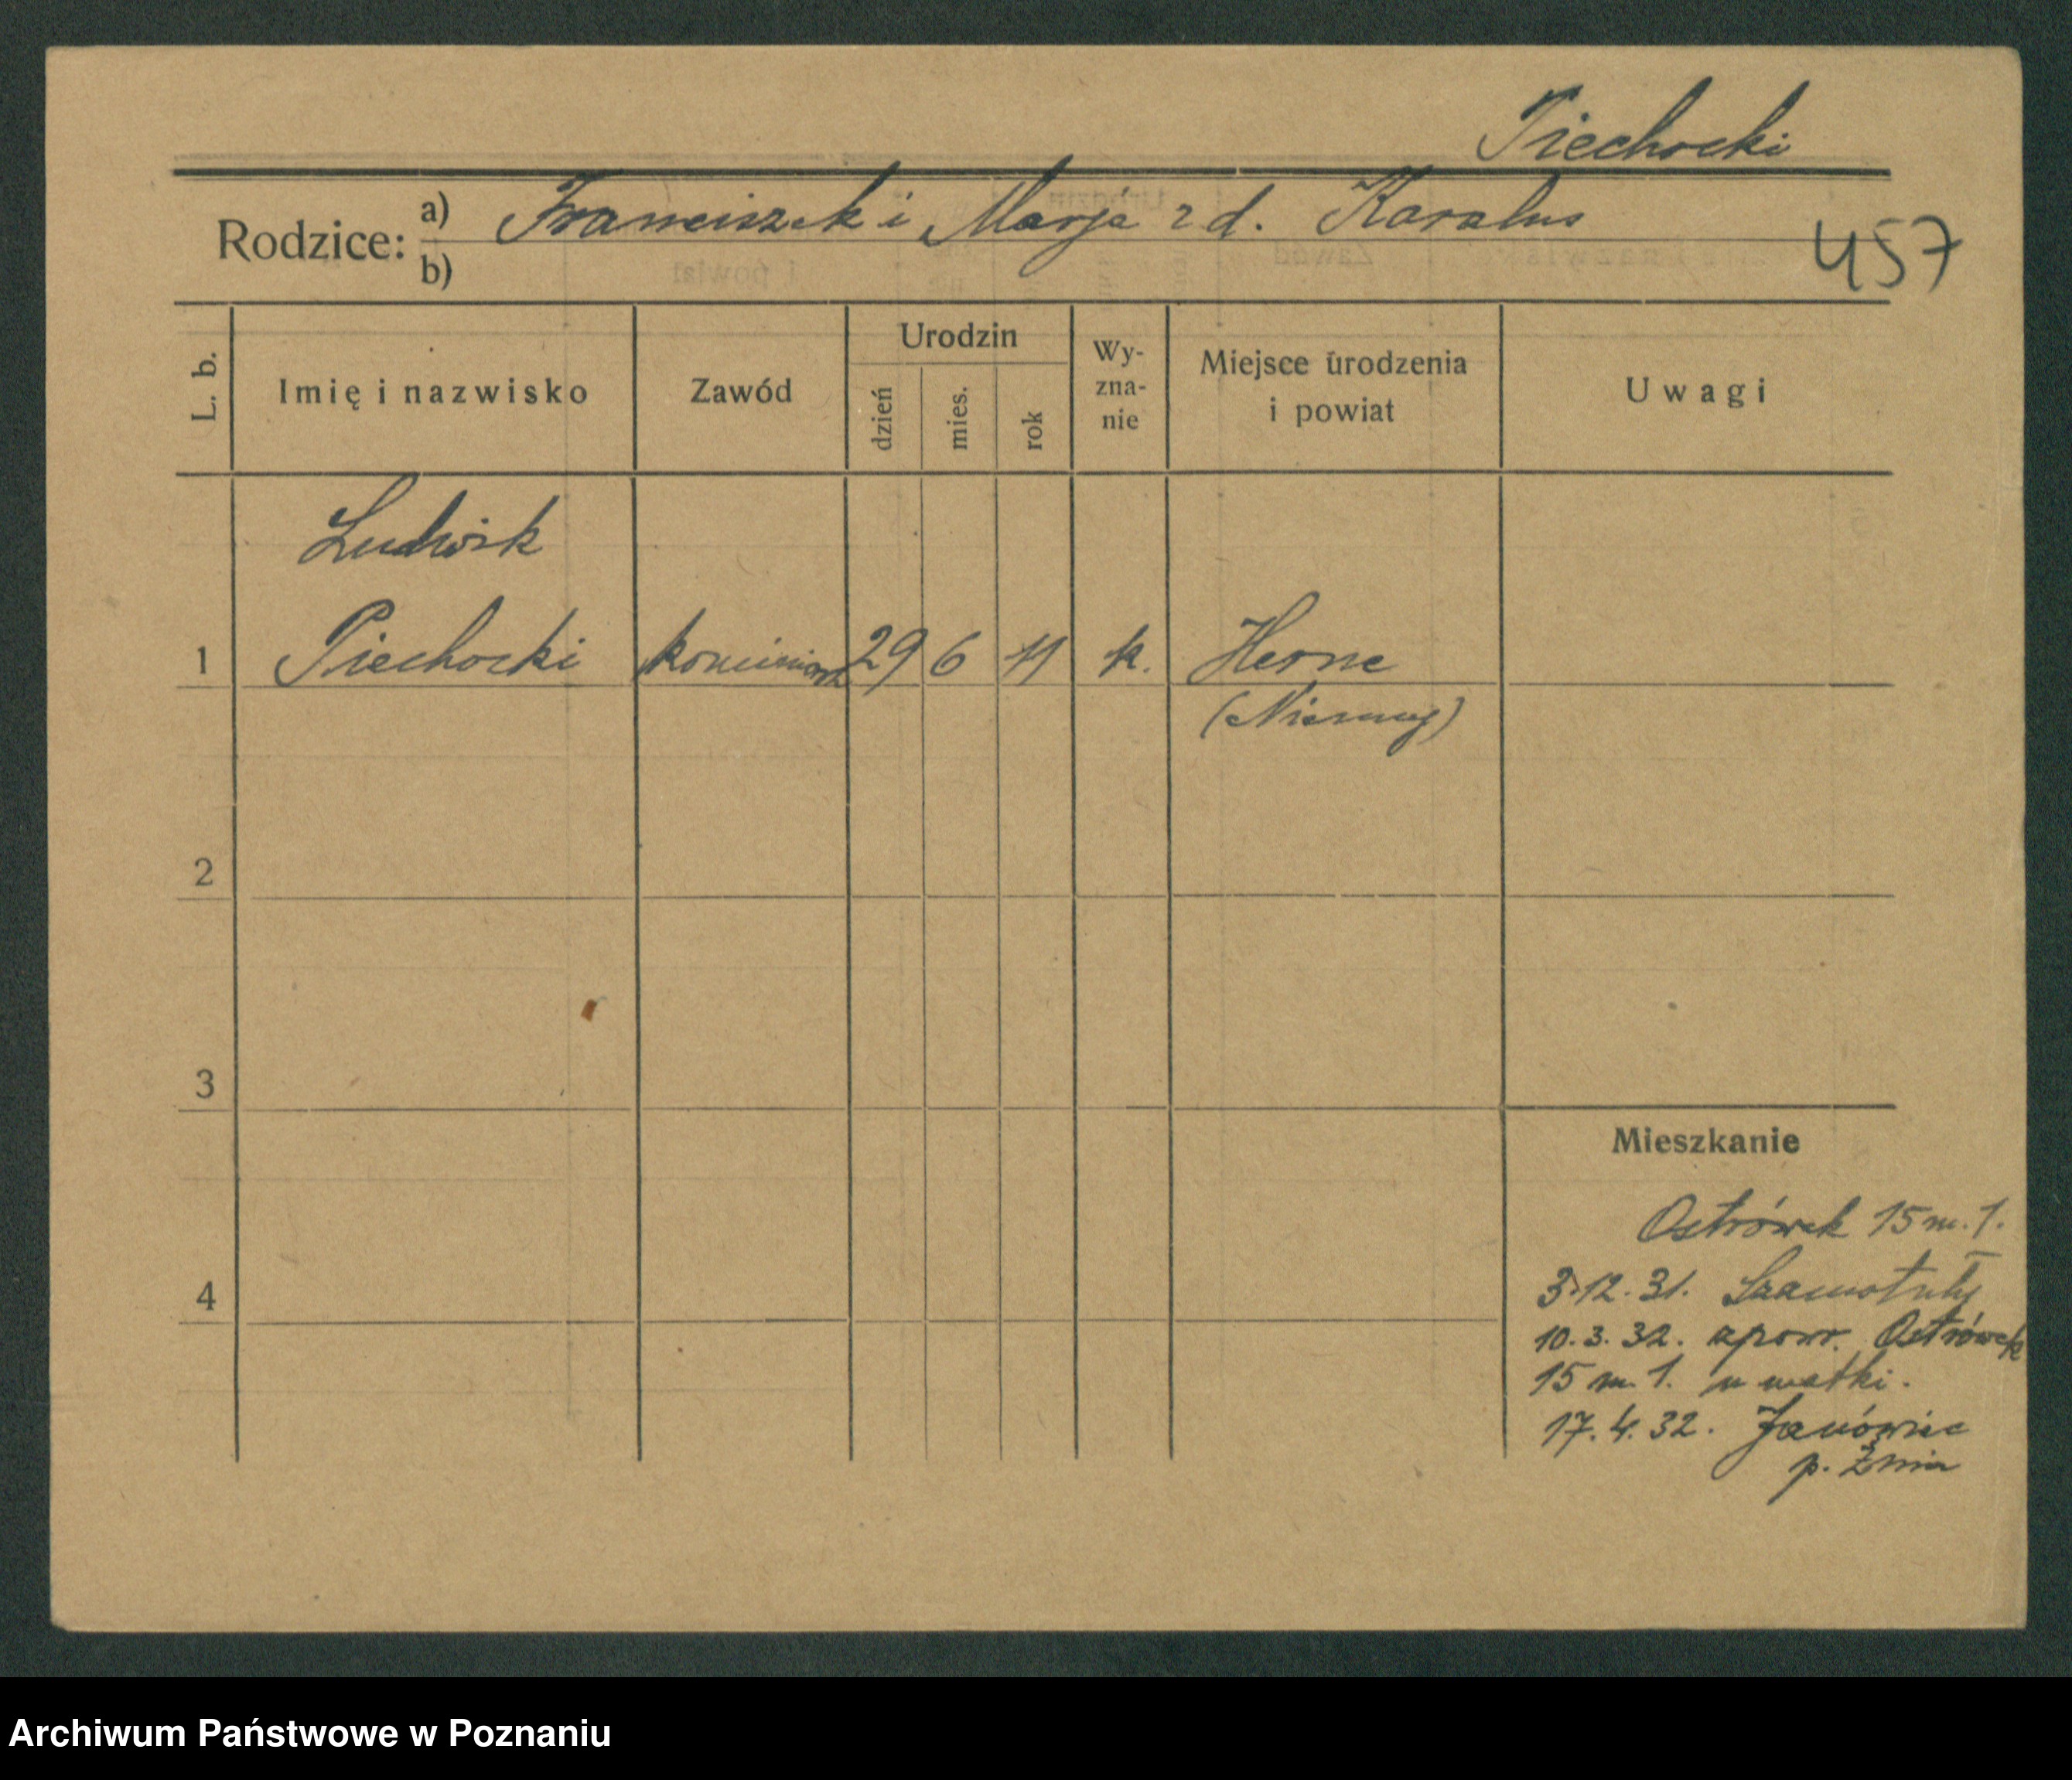 Piechocki
Rodzice: a) Franciszek i Marja z d. Karalus
b)
457
L. b.
Imię i nazwisko
Zawód
Urodzin
dzień
mies.
rok
Wy-
zna-
nie
Miejsce urodzenia
i powiat
Uwagi
Ludwik
1 Piechocki kominiarz 29 6 11 k. Herne
(Niemcy)
2
3
4
Mieszkanie
Ostrówek 15 m. 1.
3.12.31. Szamotuły
10.3.32. zpowr. Ostrówek
15 m. 1. u matki.
17.4.32. Janówiec
p. Żnin
Archiwum Państwowe w Poznaniu